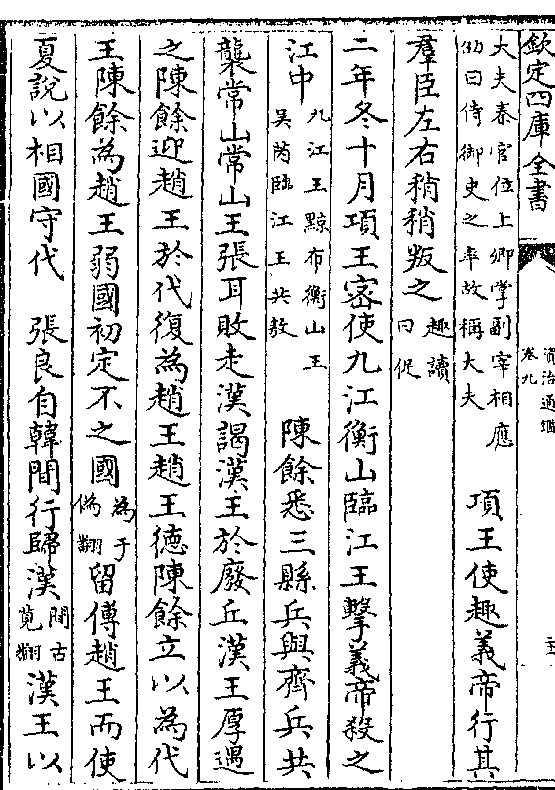 欽定四庫全書
資治通鑑
卷九
大夫春官位上卿掌副宰相應
劭曰侍御史之率故稱大夫
項王使趣義帝行其
羣臣左右稍稍叛之
趣讀
曰促
二年冬十月項王密使九江衡山臨江王擊義帝殺之
江中
九江王黥布衡山王
吳芮臨江王共敖
陳餘悉三縣兵與齊兵共
襲常山常山王張耳敗走漢謁漢王於廢丘漢王厚遇
之陳餘迎趙王於代復為趙王趙王德陳餘立以為代
王陳餘為趙王弱國初定不之國
為于
偽翻
留傅趙王而使
夏說以相國守代 張良自韓間行歸漢
間古
莧翻
漢王以